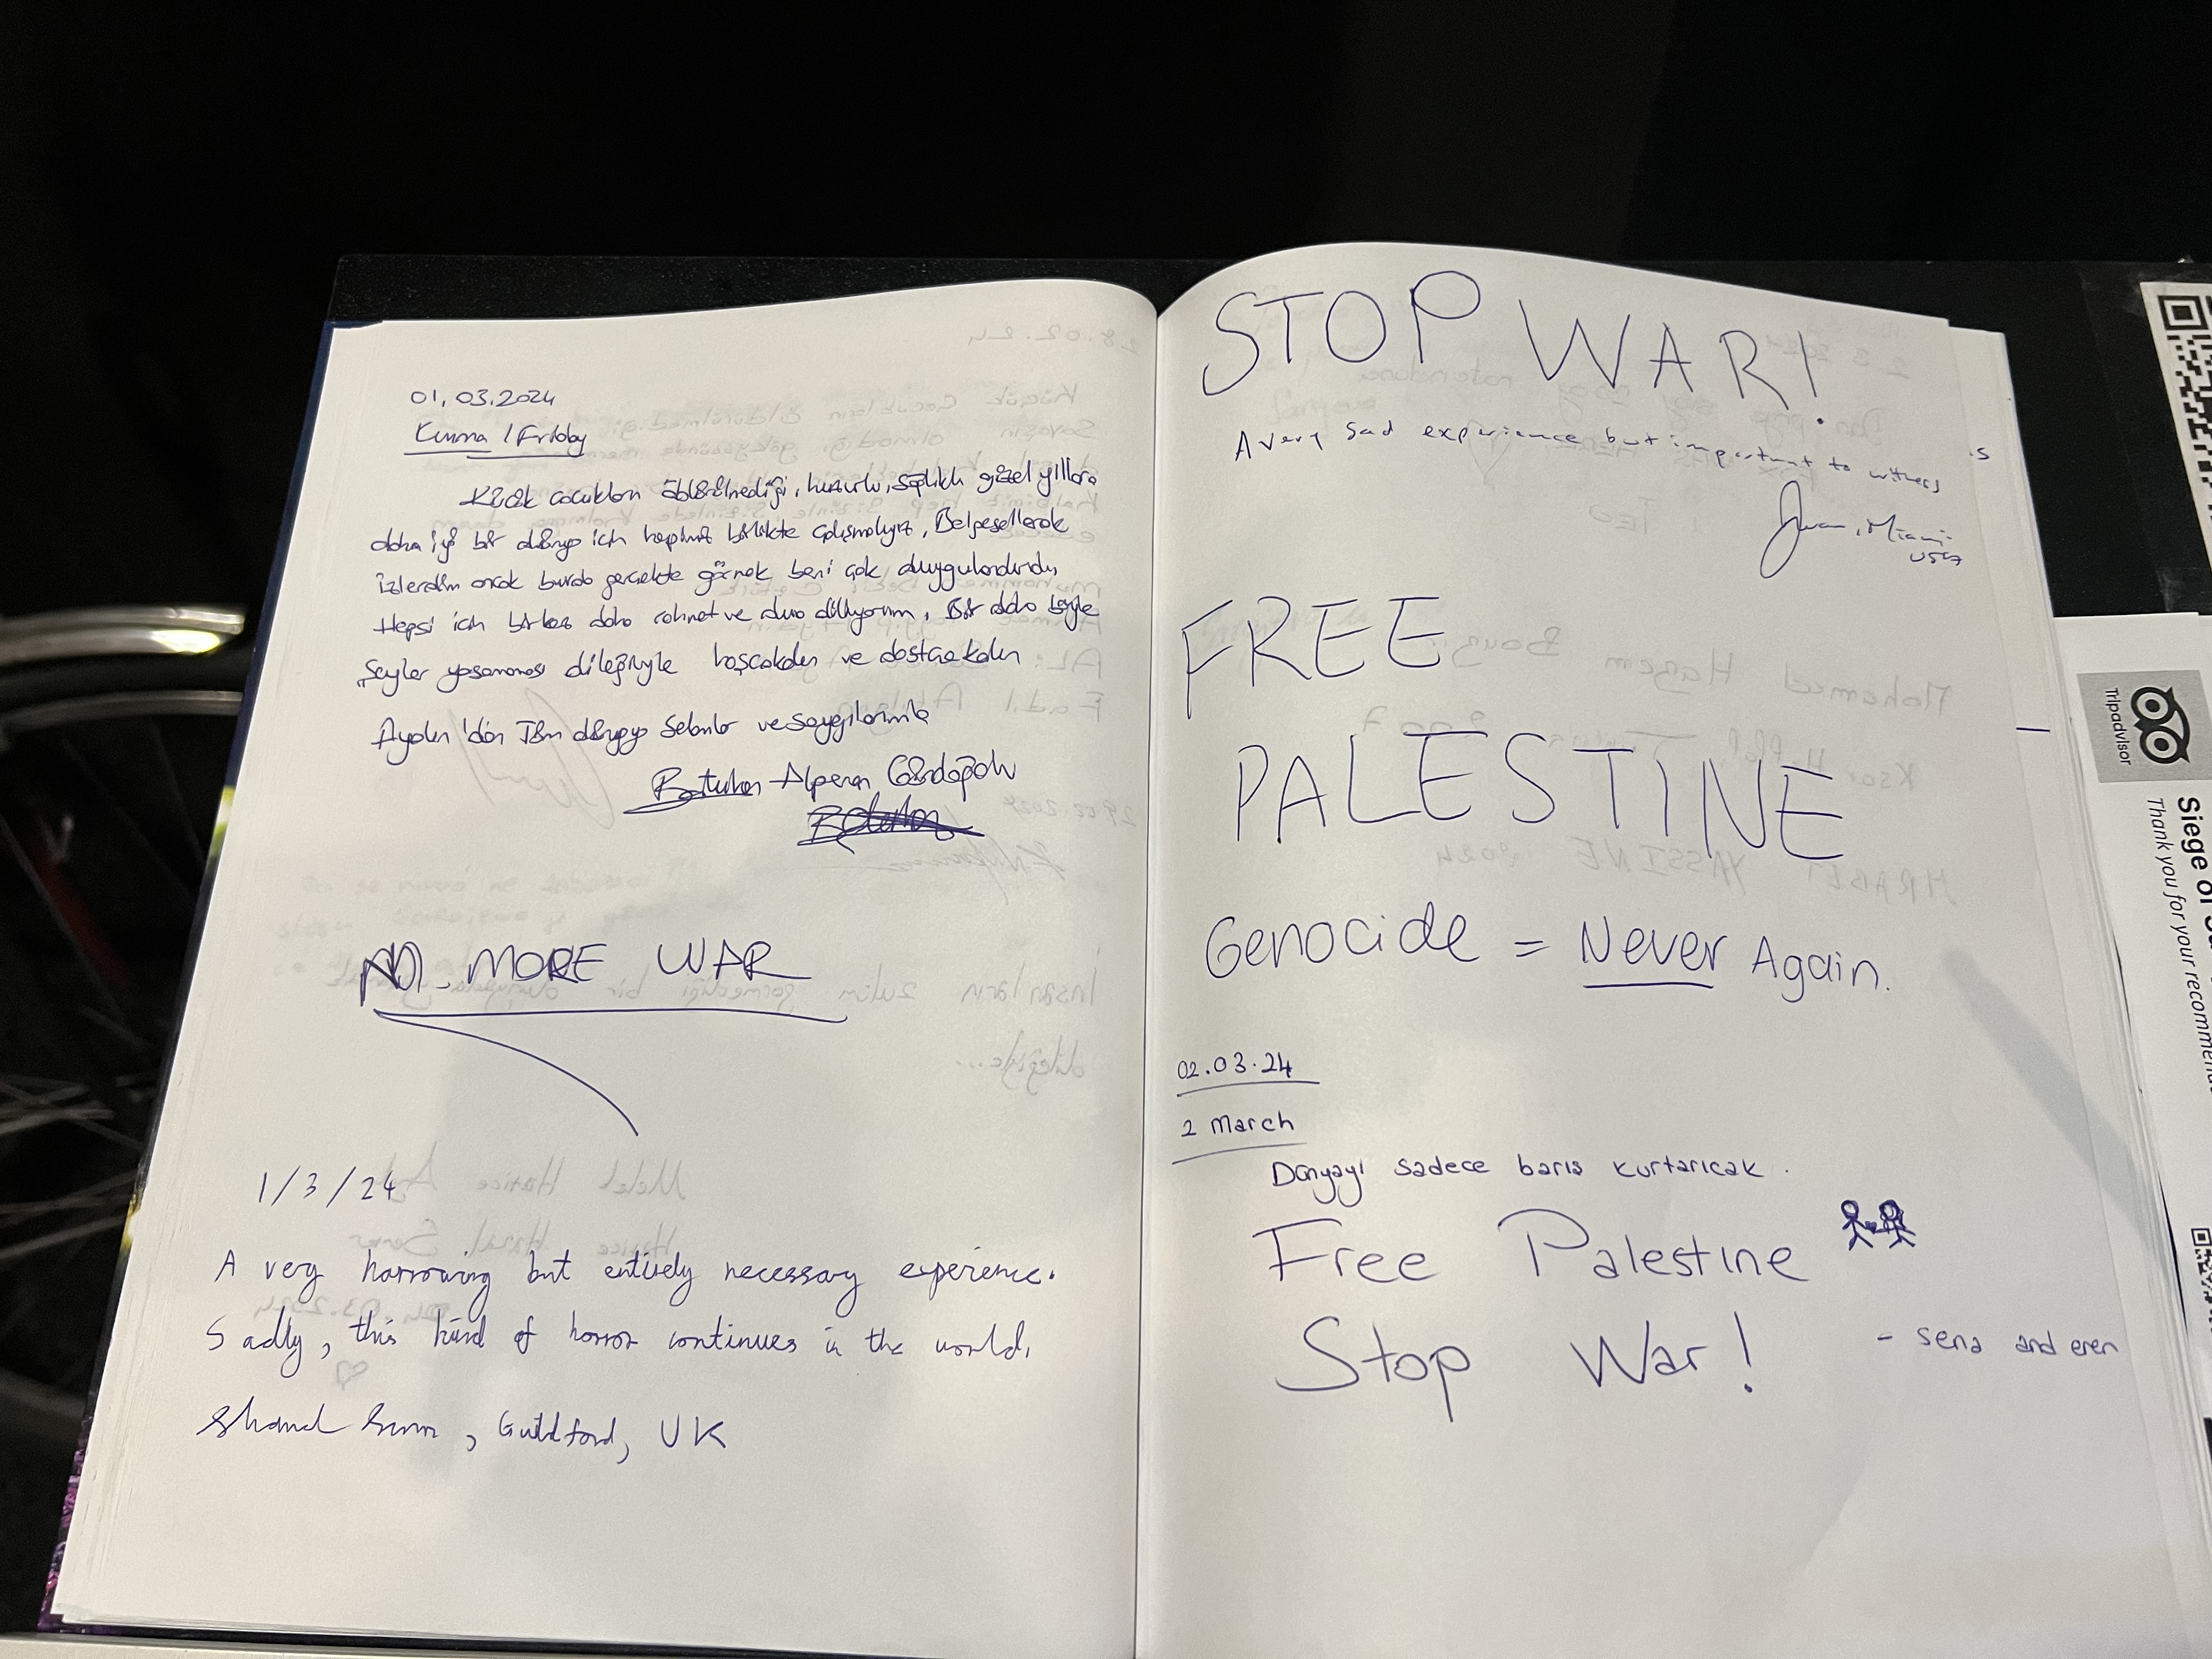 01.03.2024
Kuma / Friday
Küçük çocukların öldürülmediği, huzurlu, sağlıklı güzel yıllara
daha iyi bir dünya için hepimiz birlikte çalışmalıyız. Belgesellerde
izlerdim ancak burda gerçekte görmek beni çok duygulandırdı.
Hepsi için birkez daha rahmet ve dua diliyorum. Bir daha böyle
şeyler yaşanması dileğiyle hoşçakalın ve dostça kalın
'dan Tüm dünyaya selamlar ve saygılarımla
Batuhan Alperen
NO MORE WAR
1/3/24
A very harrowing but entirely necessary experience.
Sadly, this kind of horror continues in the world.
, Guildford, UK
STOP WAR!
A very sad experience but important to witness
Juan, Miami
USA
FREE
PALESTINE
Genocide = Never Again.
02.03.24
2 March
Dünyayı sadece barıs kurtarıcak.
Free Palestine
Stop War!
- sena and eren
Tripadvisor
Siege of
Thank you for your